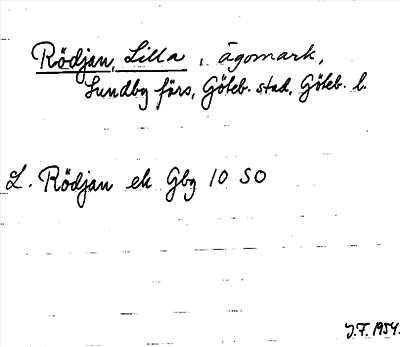 Rödjan, Lilla, ägomark,
Lundby förs, Göteb. stad, Göteb. l.
L. Rödjan ek Gbg 10 SO
J.F. 1954.